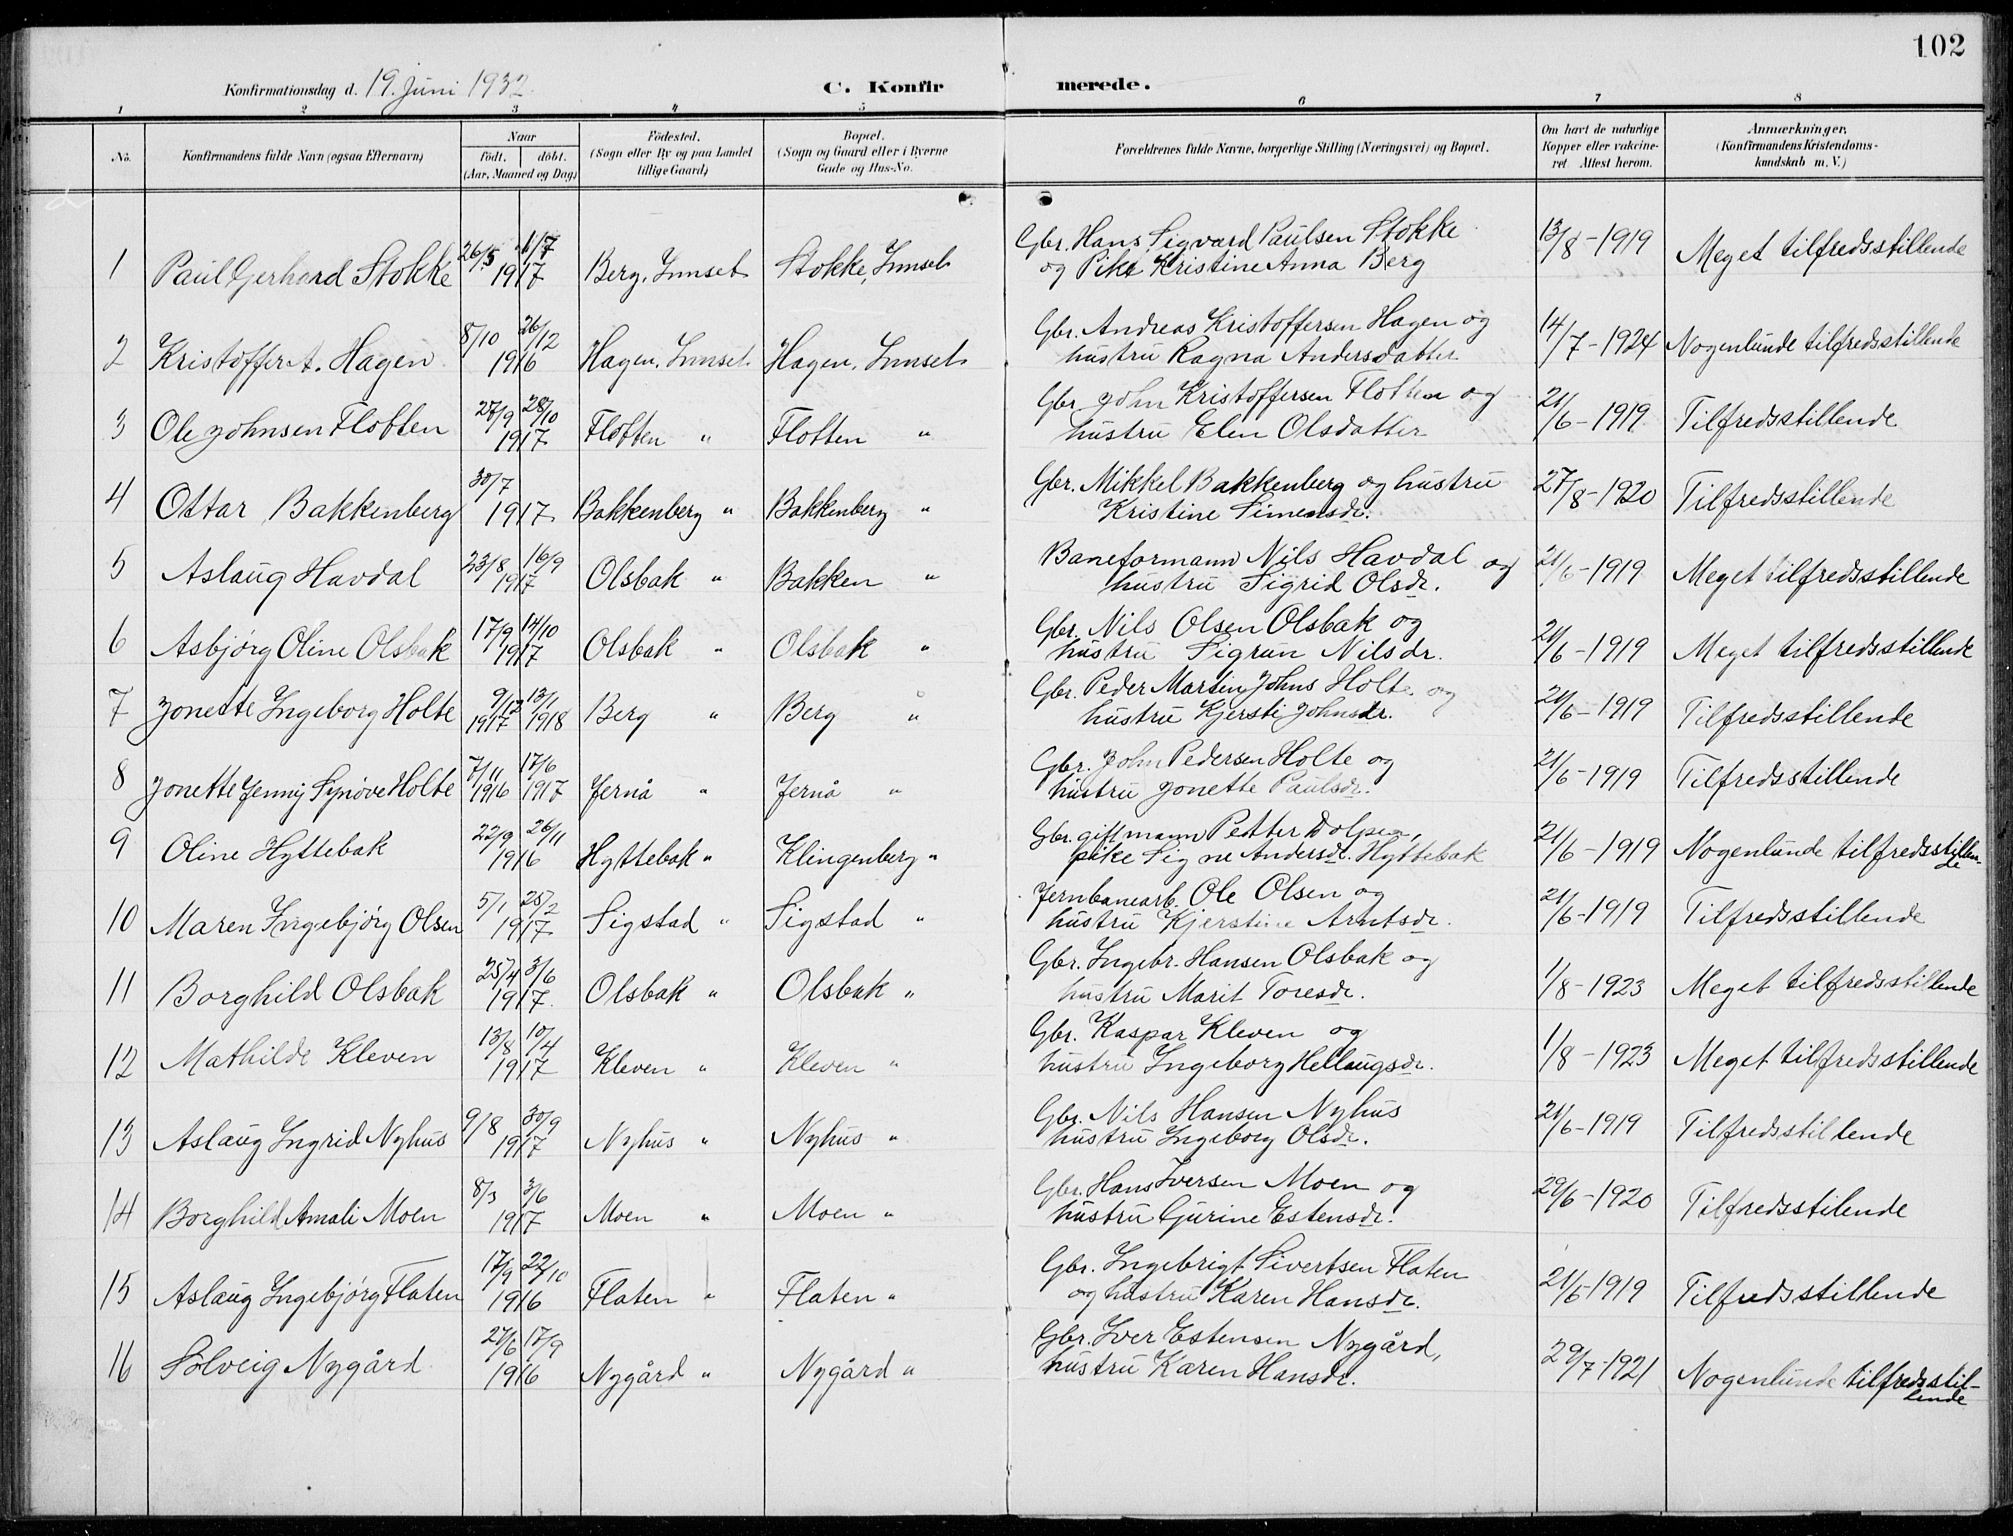 102
Konfirmationsdag d. 19. Juni 1932. C. Konfirmerede.
1 2 3 4 5 6 7 8
No. Konfirmandens fulde Navn (ogsaa Efternavn) Naar født. døbt. (Aar, Maaned og Dag) Fødested. (Sogn eller By og paa Landet tillige Gaard) Bopæl. (Sogn og Gaard eller i Byerne Gade og Hus-No. Forældrenes fulde Navne, borgerlige Stilling (Næringsvei) og Bopæl. Om havt de naturlige Kopper eller vakcineret Attest herom. Anmærkninger. (Konfirmandens Kristendomskundskab m. V.)
1 Paul Gerhard Stokke 26/5 1/7 1917 Berg, Innset Stokke, Innset Gbr. Hans Sigvard Paulsen Stokke 13/8-1919 Meget tilfredsstillende
og Pike Kristine Anna Berg
2 Kristoffer A. Hagen 8/10 26/12 1916 Hagen, Innset Hagen, Innset Gbr. Andreas Kristoffersen Hagen og 14/7-1924 Nogenlunde tilfredsstillende
hustru Ragna Andersdatter
3 Ole Johnsen Flotten 27/9 28/10 1917 Flotten " Flotten " Gbr John Kristoffersen Flotten og 21/6-1919 Tilfredsstillende
hustru Elen Olsdatter
4 Ottar Bakkenberg 30/7 1917 Bakkenberg " Bakkenberg " Gbr. Mikkel Bakkenberg og hustru 27/8-1920 Tilfredsstillende
Kristine Simensdr.
5 Aslaug Havdal 23/8 16/9 1917 Olsbak " Bakken " Baneformann Nils Havdal og 21/6-1919 Meget tilfredsstillende
hustru Sigrid Olsdr.
6 Asbjørg Oline Olsbak 17/9 14/10 1917 Olsbak " Olsbak " Gbr. Nils Olsen Olsbak og 21/6-1919 Meget tilfredsstillende
hustru Sigrun Nilsdr.
7 Jonette Ingeborg Holte 9/12 1917 13/1 1918 Berg " Berg " Gbr. Peder Martin Johns Holte og 21/6-1919 Tilfredsstillende
hustru Kjersti Johnsdr.
8 Jonette Jenny Synøve Holte 7/11 1916 17/6 1917 Jernå " Jernå " Gbr. John Pedersen Holte og 21/6-1919 Tilfredsstillende
hustru Jonette Paulsdr.
9 Oline Hyttebak 22/9 26/11 1916 Hyttebak " Klingenberg " Gbr. gift mann Petter Dolpen, 21/6-1919 Nogenlunde tilfredsstillende
pike Signe Andersdr. Hyttebak
10 Maren Ingebjørg Olsen 5/1 25/2 1917 Sigstad " Sigstad " Jernbanearb. Ole Olsen og 21/6-1919 Tilfredsstillende
hustru Kjerstine Arntsdr.
11 Borghild Olsbak 25/4 3/6 1917 Olsbak " Olsbak " Gbr. Ingebr. Hansen Olsbak og 1/8-1923 Meget tilfredsstillende
hustru Marit Toresdr.
12 Mathilde Kleven 13/8 10/4 1917 Kleven " Kleven " Gbr. Kaspar Kleven og 1/8-1923 Meget tilfredsstillende
hustru Ingeborg Hellaugsdr.
13 Aslaug Ingrid Nyhus 9/8 30/9 1917 Nyhus " Nyhus " Gbr. Nils Hansen Nyhus 21/6-1919 Tilfredsstillende
hustru Ingeborg Olsdr.
14 Borghild Amali Moen 8/3 3/6 1917 Moen " Moen " Gbr. Hans Iversen Moen og 29/6-1920 Tilfredsstilende
hustru Gurine Estensdr.
15 Aslaug Ingebjørg Flaten 17/9 22/10 1916 Flaten " Flaten " Gbr. Ingebrigt Sivertsen Flaten 21/6-1919 Tilfredsstillende
og hustru Karen Hansdr.
16 Solveig Nygård 27/6 17/9 1916 Nygård " Nygård " Gbr. Iver Estensen Nygård, 29/7-1921 Nogenlunde tilfredsstillende
hustru Karen Hansdr.